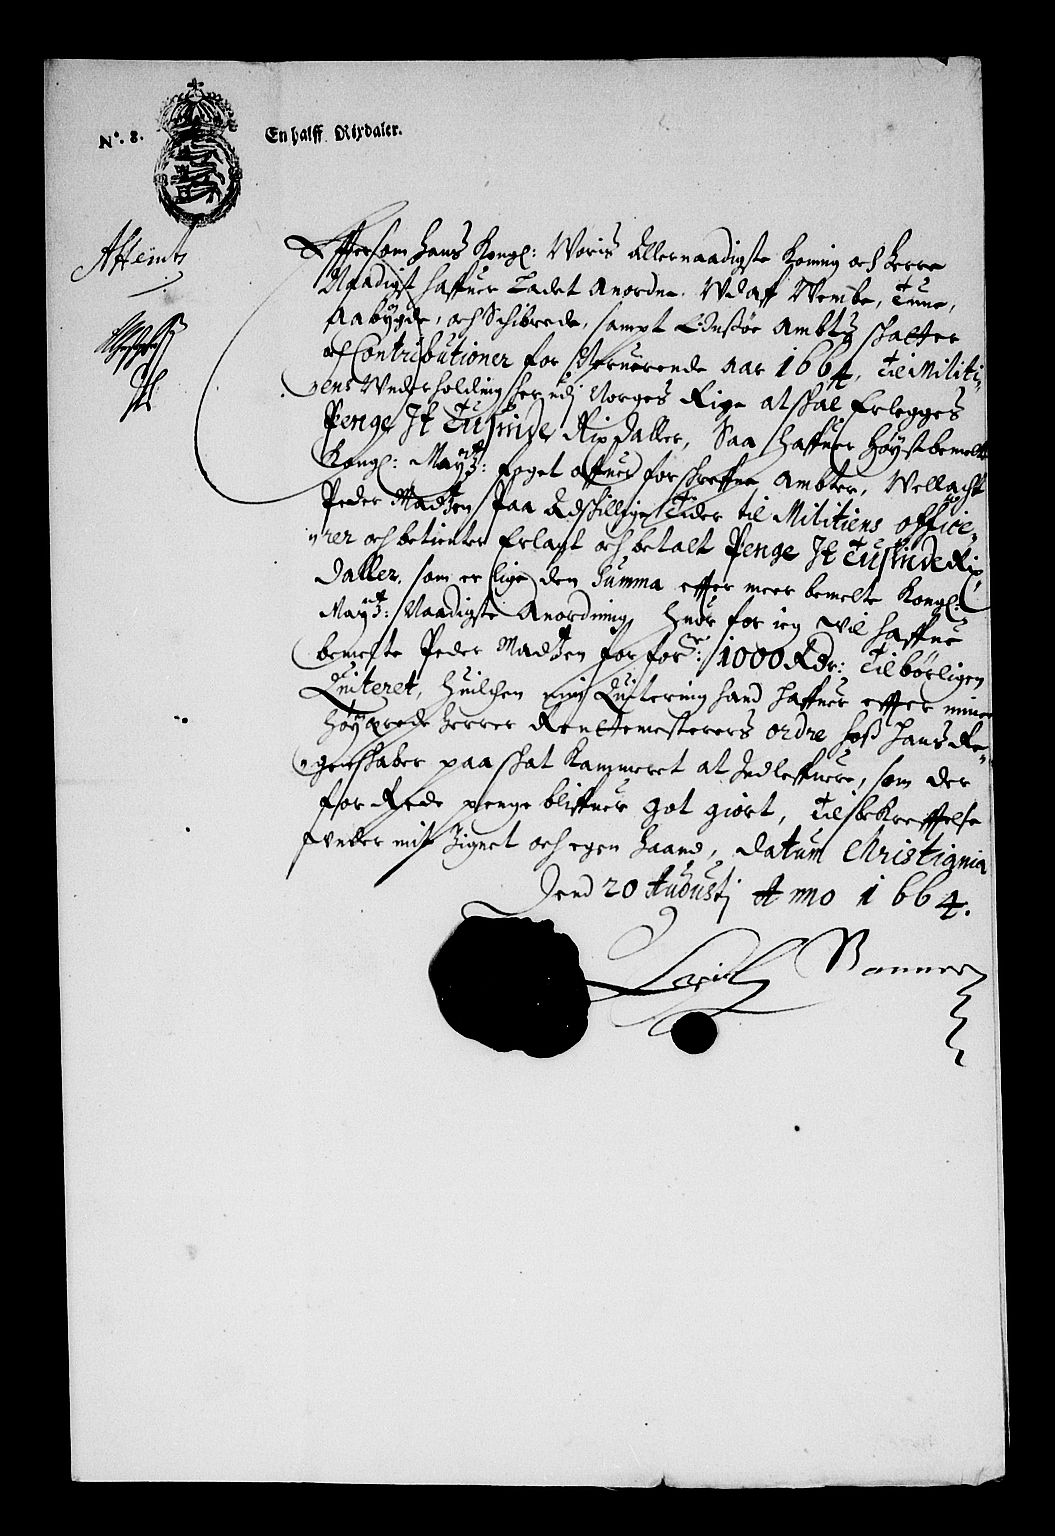 No. 8. En halff Rixdaler.
Effttersom Hans Kongl: Woris Allernaadigste Koning och Herre
Naadigst haffuer Ladet Anordne, Vdaff Wembe, Tune,
Aabÿgde, och Schibrede, sampt Ambtz Skatter
och Contributioner for Aar 1664, Til Militi-
ens Vnderholding her udj Norges Rige at skal Erlegges
Penge It Tusinde Rix daller, Saa haffuer Høystbemelte
Kongl: Maytz: foget offuer forschreffne Ambter, Wellacht
Peder Madtzen Paa Adskillige Tider til Militiens office-
rer och betienter Erlagt och betalt Penge It Tusinde Rix
daller, som er lige den Summa effter meer bemelte Kongl:
Maytz: Naadigste Anordning, Huor for ieg vil haffue
bemelte Peder Madtzen for forne: 1000 Rdr: Tilbørligen
Quiteret, Huilchen min Quittering hand haffuer effter mine
Høÿgrede Herrer Rentemesterers ordre hoß hans Re-
genskaber paa Skat Kammeret at Indleffuere, som der
for Rede penge bliffuer got giort, Til bekrefftelse
vnder mit Zignet och egen Haand, Datum Christignia
Dend 20 Augustj Anno 1664.
Banner